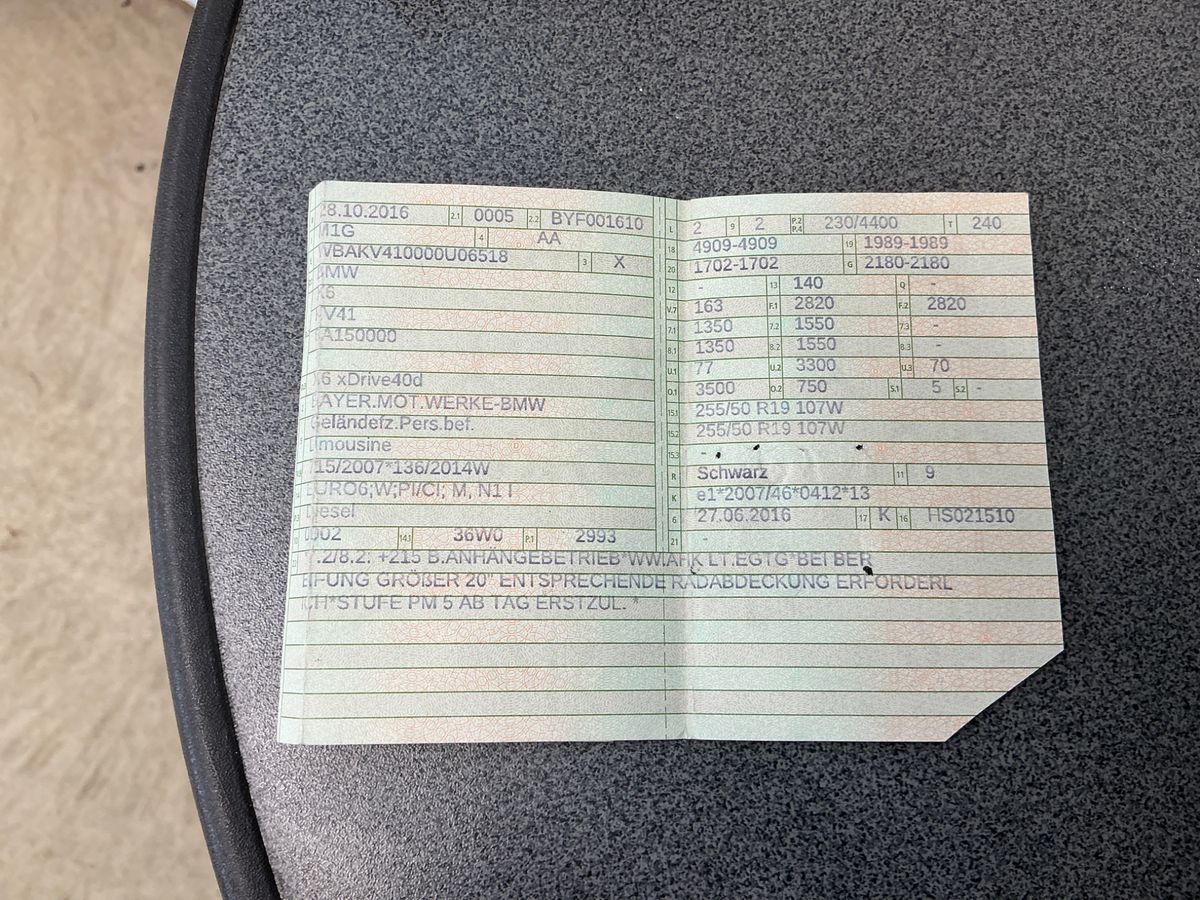 28.10.2016 2.1 0005 2.2 BYF001610
M1G 4 AA
WBAKV410000U06518 3 X
BMW
X6
KV41
A150000
X6 xDrive40d
BAYER.MOT.WERKE-BMW
Geländefz.Pers.bef.
Limousine
715/2007*136/2014W
EURO6;W;PI/CI; M, N1 I
Diesel
0002 14.1 36W0 P.1 2993
L 2 9 2 P.2 P.4 230/4400 T 240
18 4909-4909 19 1989-1989
20 1702-1702 G 2180-2180
12 - 13 140 Q -
V.7 163 F.1 2820 F.2 2820
7.1 1350 7.2 1550 7.3 -
8.1 1350 8.2 1550 8.3 -
U.1 77 U.2 3300 U.3 70
O.1 3500 O.2 750 S.1 5 S.2 -
15.1 255/50 R19 107W
15.2 255/50 R19 107W
15.3 -
R Schwarz 11 9
K e1*2007/46*0412*13
6 27.06.2016 17 K 16 HS021510
21 -
7.2/8.2: +215 B.ANHÄNGEBETRIEB*WW.AHK LT.EGTG*BEI BER
EIFUNG GRÖßER 20" ENTSPRECHENDE RADABDECKUNG ERFORDERL
ICH*STUFE PM 5 AB TAG ERSTZUL. *